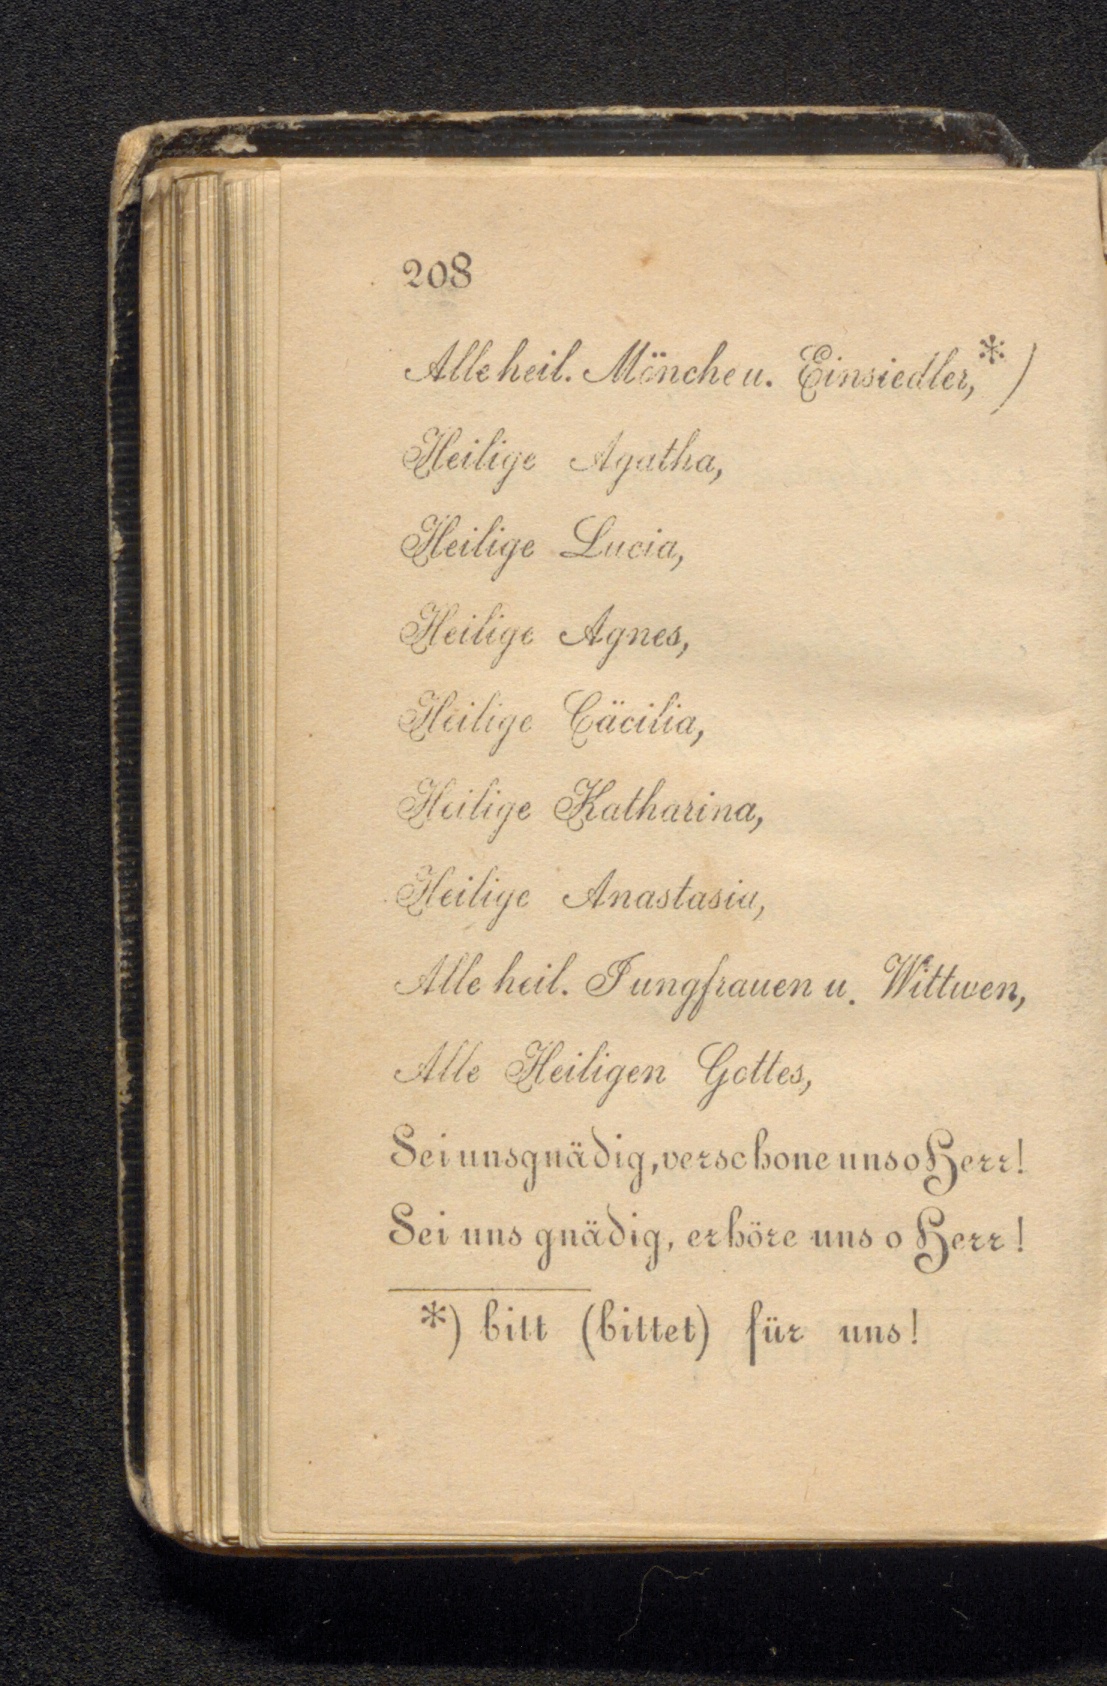 208
Alle heil. Mönche u. Einsiedler,*)
Heilige Agatha,
Heilige Lucia,
Heilige Agnes,
Heilige Cäcilia,
Heilige Katharina,
Heilige Anastasia,
Alle heil. Jungfrauen u. Wittwen,
Alle Heiligen Gottes,
Sei uns gnädig, verschone uns o Herr!
Sei uns gnädig, erhöre uns o Herr!
*) bitt (bittet) für uns!